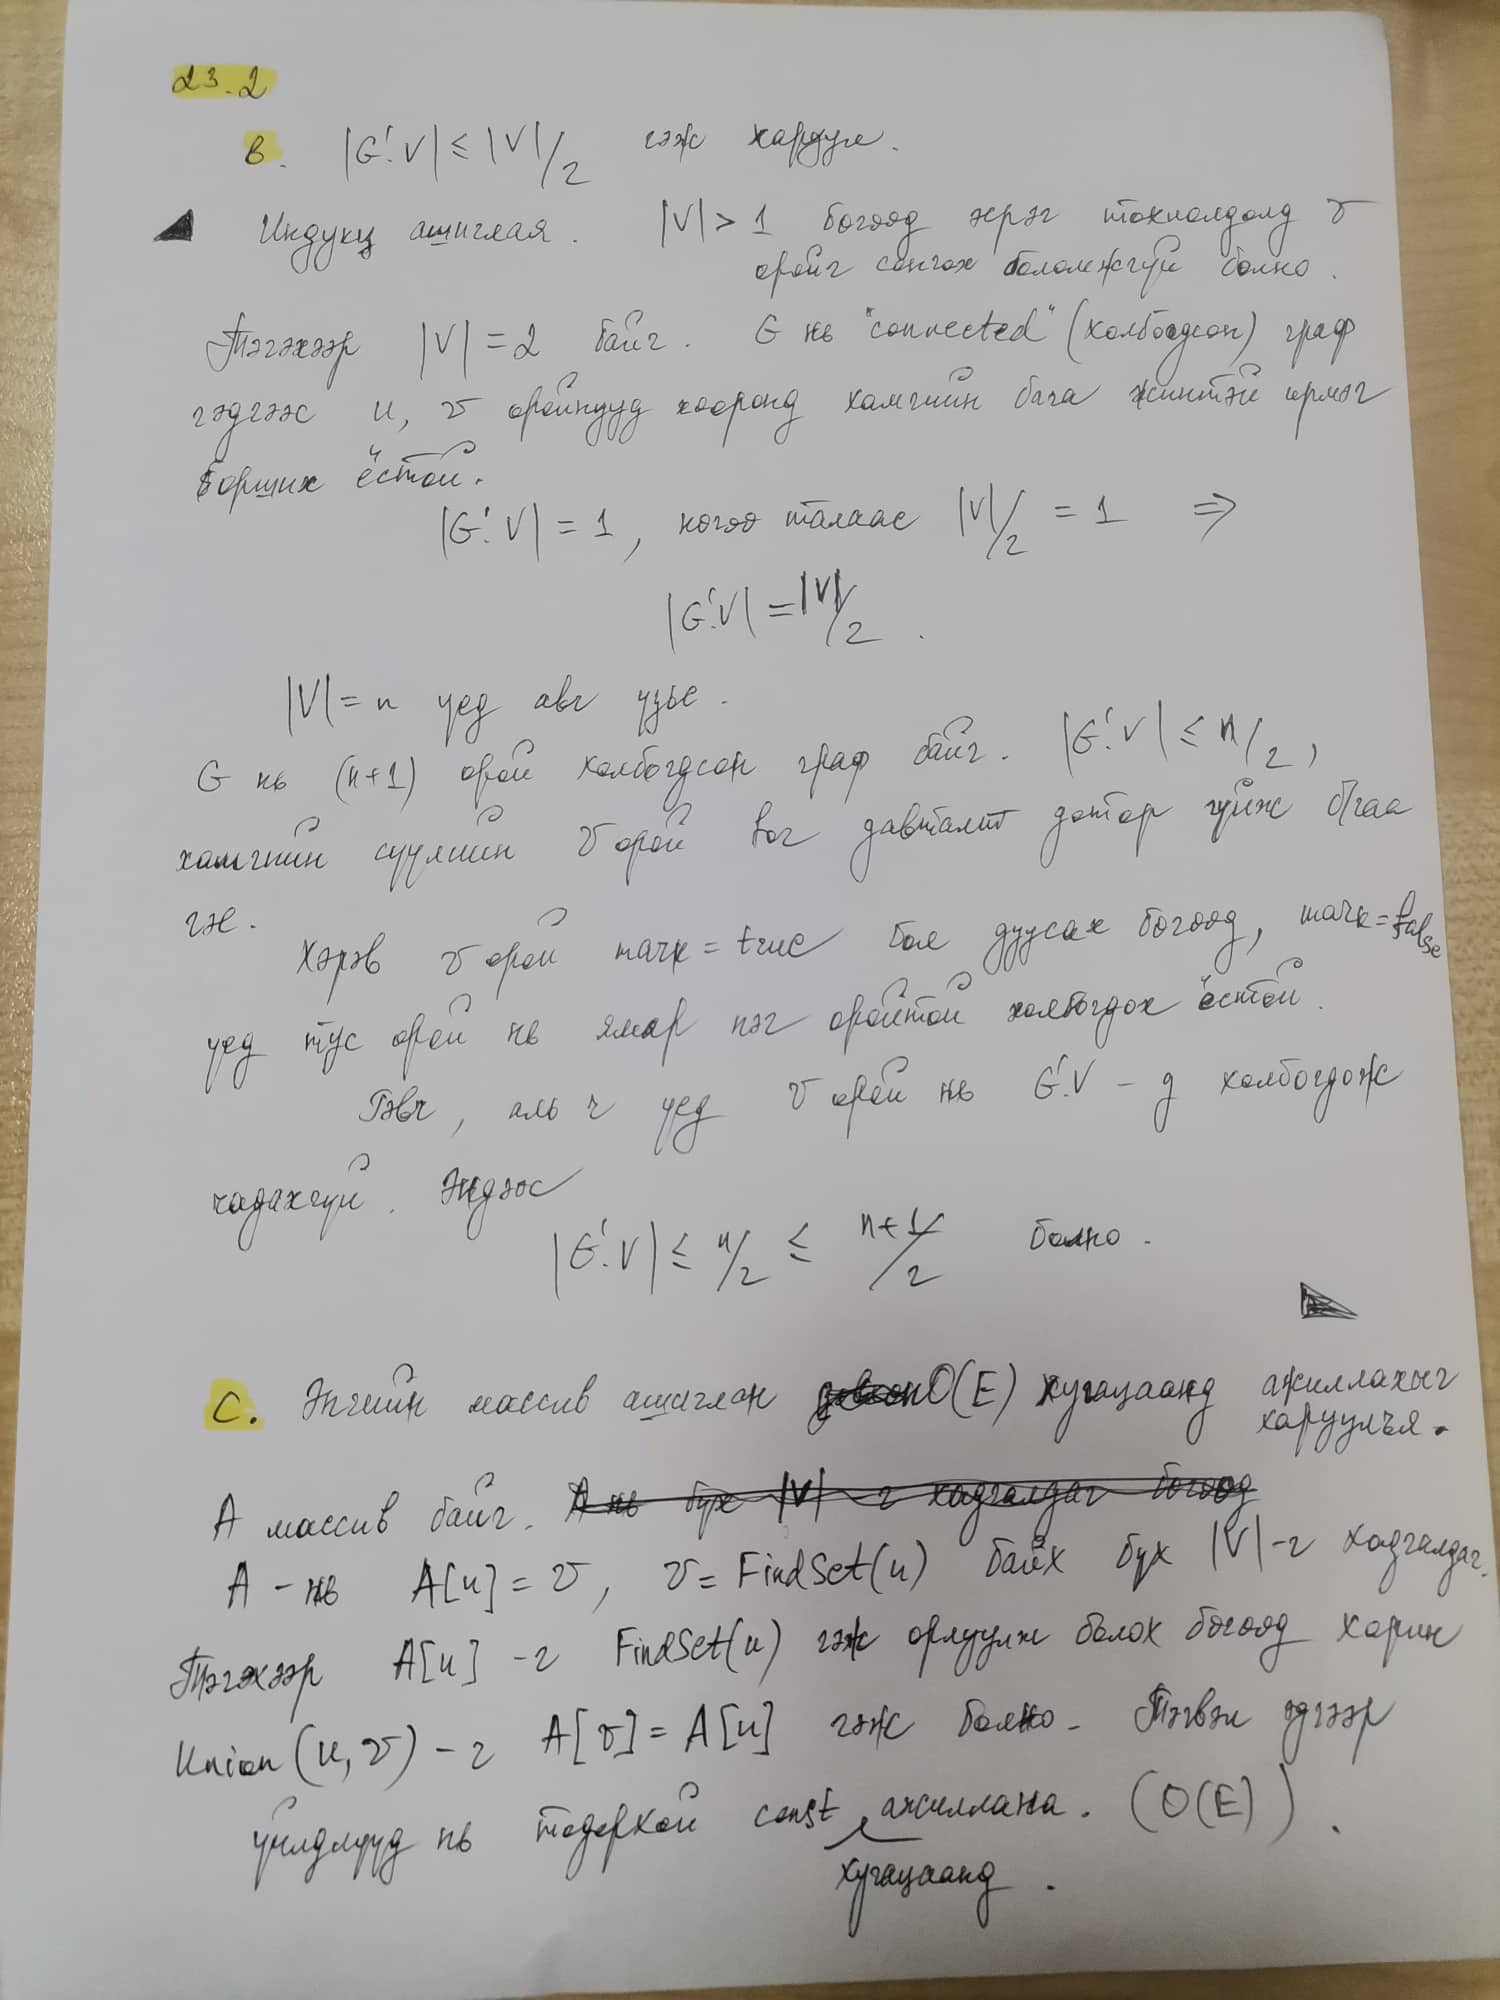 23.2
B. |G'.V| ≤ |V|/2 гэж харуул.
Индукц ашиглая. |V| > 1 бөгөөд эсрэг тохиолдолд v
оройг сонгох боломжгүй болно.
Тэгэхээр |V| = 2 байг. G нь "connected" (холбогдсон) граф
гэдгээс u, v оройнууд хооронд хамгийн бага жинтэй ирмэг
орших ёстой.
|G'.V| = 1, нөгөө талаас |V|/2 = 1 ⇒
|G'.V| = |V|/2.
|V| = n үед авч үзье.
G нь (n+1) орой холбогдсон граф байг. |G'.V| ≤ n/2,
хамгийн сүүлийн v орой for давталт дотор гүйж бгаа
гэе.
Хэрэв v орой mark = true бол дуусах бөгөөд, mark = false
үед тус орой нь ямар нэг оройтой холбогдох ёстой.
Гэвч, аль ч үед v орой нь G'.V - д холбогдож
чадахгүй. Эндээс
|G'.V| ≤ n/2 ≤ n+1/2 болно.
C. Энгийн массив ашиглан O(E) хугацаанд ажиллахыг
харуулъя.
A массив байг. A нь бүх |V| - г хадгалдаг бөгөөд
A - нь A[u] = v, v = FindSet(u) байх бүх |V| - г хадгалдаг.
Тэгэхээр A[u] - г FindSet(u) гэж орлуулж болох бөгөөд харин
Union(u, v) - г A[v] = A[u] гэж болно. Тэгвэл эдгээр
үйлдлүүд нь тодорхой const ажиллана. (O(E)).
хугацаанд.